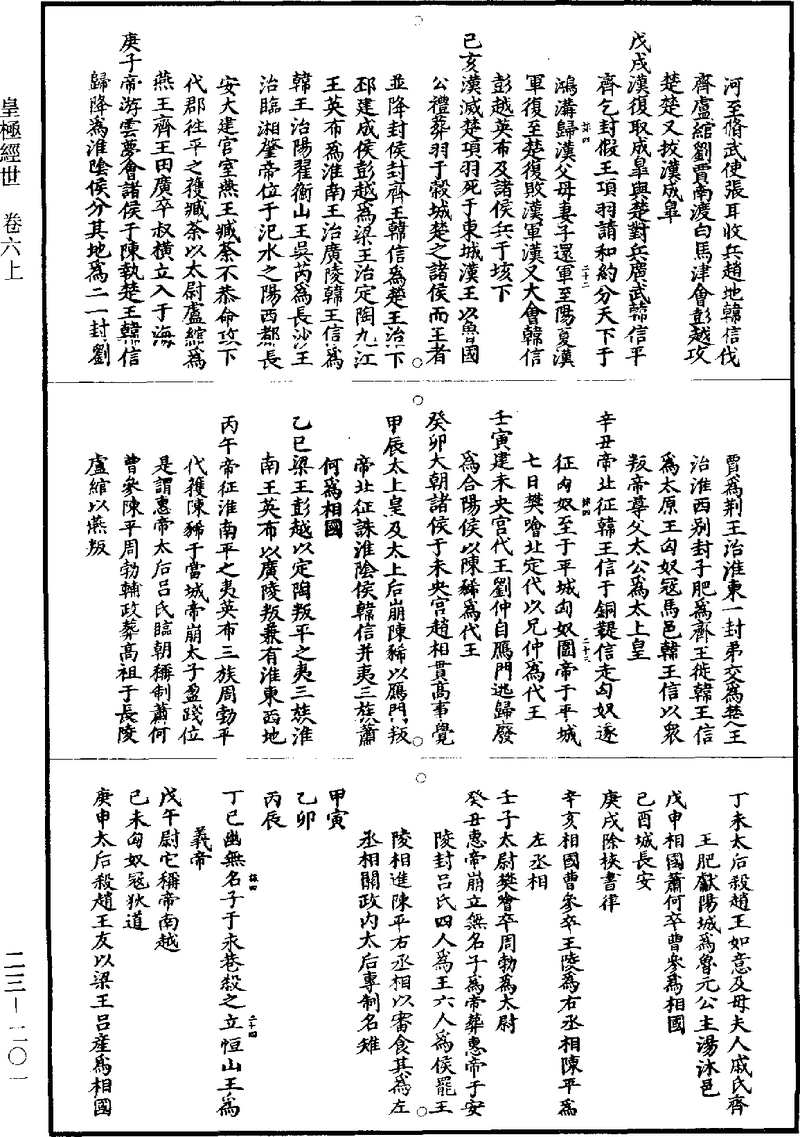 皇極經世　卷六上
二三－二〇一
河至脩武使張耳收兵趙地韓信伐
齊盧綰劉賈南渡白馬津會彭越攻
楚楚又拔漢成臯
戊戌漢復取成臯與楚對兵廣武韓信平
齊乞封假王項羽請和約分天下于
鴻溝歸漢父母妻子還軍至陽夏漢
軍復至楚復敗漢軍漢又大會韓信
彭越英布及諸侯兵于垓下
己亥漢滅楚項羽死于東城漢王以魯國
公禮葬羽于穀城楚之諸侯而王者
並降封侯封齊王韓信為楚王治下
邳建成侯彭越為梁王治定陶九江
王英布為淮南王治廣陵韓王信為
韓王治陽翟衡山王吳芮為長沙王
治臨湘肇帝位于汜水之陽西都長
安大建官室燕王臧荼不恭命攻下
代郡往平之獲臧荼以太尉盧綰為
燕王齊王田廣卒叔橫立入于海
庚子帝游雲夢會諸侯于陳執楚王韓信
歸降為淮陰侯分其地為二一封劉
賈為荆王治淮東一封弟交為楚王
治淮西别封子肥為齊王徙韓王信
為太原王匈奴冦馬邑韓王信以衆
叛帝尊父太公為太上皇
辛丑帝北征韓王信于銅鞮信走匈奴遂
征匈奴至于平城匈奴圍帝于平城
七日樊噲北定代以兄仲為代王
壬寅建未央宫代王劉仲自鴈門逃歸廢
為合陽侯以陳豨為代王
癸卯大朝諸侯于未央宫趙相貫高事覺
甲辰太上皇及太上后崩陳豨以鴈門叛
帝北征誅淮陰侯韓信并夷三族蕭
何為相國
乙巳梁王彭越以定陶叛平之夷三族淮
南王英布以廣陵叛兼有淮東西地
丙午帝征淮南平之夷英布三族周勃平
代獲陳豨于當城帝崩太子盈踐位
是謂惠帝太后吕氏臨朝稱制蕭何
曹參陳平周勃輔政葬高祖于長陵
盧綰以燕叛
丁未太后殺趙王如意及母夫人戚氏齊
王肥獻陽城為魯元公主湯沐邑
戊申相國蕭何卒曹參為相國
己酉城長安
庚戌除挾書律
辛亥相國曹參卒王陵為右丞相陳平為
左丞相
壬子太尉樊噲卒周勃為太尉
癸丑惠帝崩立無名子為帝葬惠帝于安
陵封吕氏四人為王六人為侯罷王
陵相進陳平右丞相以審食其為左
丞相關政内太后專制名雉
甲寅
乙卯
丙辰
丁巳幽無名子于永巷殺之立恒山王為
義帝
戊午尉它稱帝南越
己未匈奴冦狄道
庚申太后殺趙王友以梁王吕産為相國